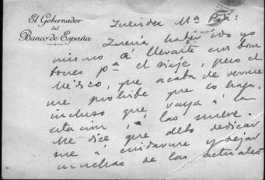 El Gobernador
del
Banco de España
Querida Mª
Quería haber ido yo
mismo á llevarte los bom
bones pª el viaje, pero el
Médico, que acaba de verme
me prohibe que lo haga,
incluso que vaya á la
estación á las nueve.
Me dice que debo dedicar
me á cuidarme y dejar
muchas de las actuales